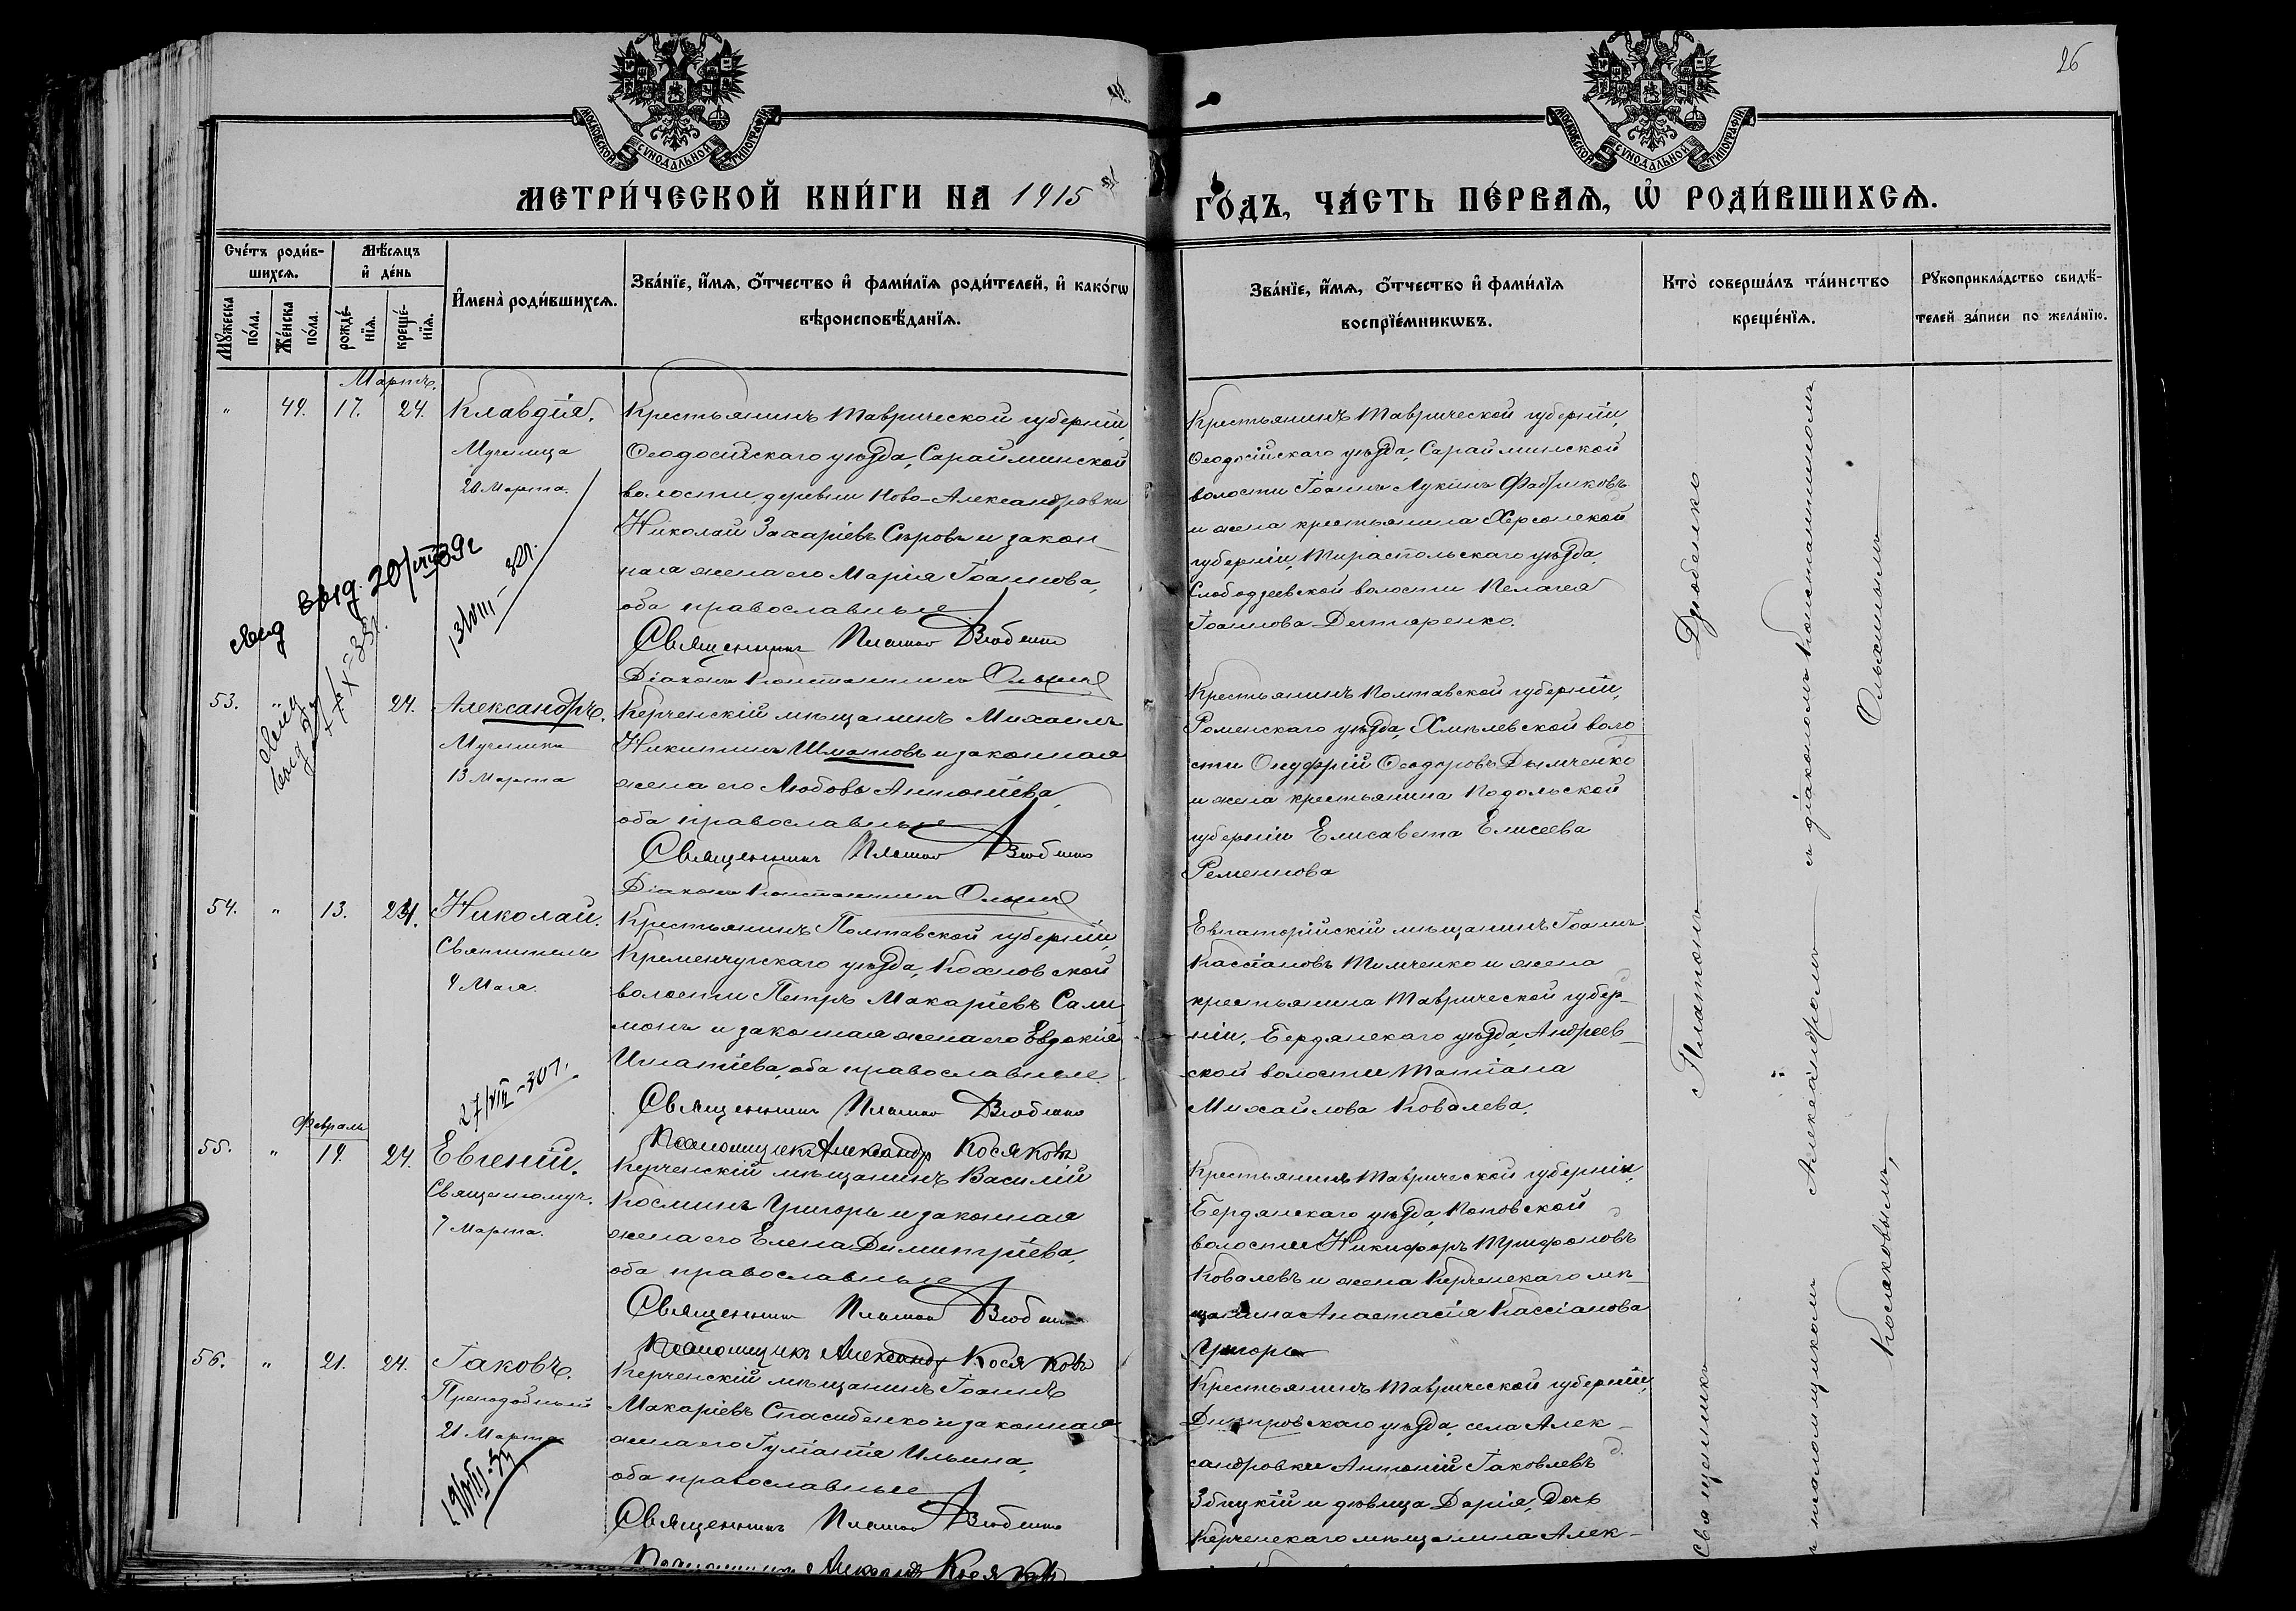 26
МОСКОВСКОЙ СѴНОДАЛЬНОЙ ТИПОГРАФІИ
МОСКОВСКОЙ СѴНОДАЛЬНОЙ ТИПОГРАФІИ
МЕТРИ́ЧЕСКОЙ КНИ́ГИ НА 1915
ГО́ДЪ, ЧА́СТЬ ПЕ́РВАѦ, Ѡ҆ РОДИ́ВШИХСѦ.
Сче́тъ роди́в-
шихсѧ.
Мꙋ́жеска
по́ла.
Же́нска
по́ла.
Мѣ́сѧцъ
и҆ де́нь
рожде́-
нїѧ.
креще́-
нїѧ.
И҆мена̀ роди́вшихсѧ.
Зва́нїе, и҆́мѧ, ѻ҆́тчество и҆ фами́лїѧ роди́телей, и҆ како́гѡ
вѣроисповѣ́данїѧ.
Зва́нїе, и҆́мѧ, ѻ҆́тчество и҆ фами́лїѧ
воспрїе́мникѡвъ.
Кто̀ соверша́лъ та́инство
креще́нїѧ.
Рꙋкоприкла́дство свидѣ́-
телей за́писи по жела́нїю.
Мартъ.
" 49. 17. 24. Клавдія.
Мученица
20 Марта.
Крестьянинъ Таврической губерніи,
Ѳеодосійскаго уѣзда, Сарайминской
волости, деревни Ново-Александровки
Николай Захаріевъ Сѣровъ и закон-
ная жена его Марія Іоаннова,
оба православные
Священникъ Платонъ Дзюбенко
Діаконъ Константинъ
Крестьянинъ Таврической губерніи,
Ѳеодосійскаго уѣзда, Сарайминской
волости Іоаннъ Лукинъ Фабриковъ
и жена крестьянина Херсонской
губерніи, Тираспольскаго уѣзда,
Слободзеевской волости Пелагея
Іоаннова Дегтяренко.
свид выд. 20/VIII 39г
13/VIII-32г.
свид
выд 27/X-33г.
53. " 24. Александръ.
Мученика
13 Марта
Керченскій мѣщанинъ Михаилъ
Никитинъ Шматовъ и законная
жена его Любовь Антоніева,
оба православные
Священникъ Платонъ Дзюбенко
Діаконъ Константинъ
Крестьянинъ Полтавской губерніи,
Роменскаго уѣзда, Хмѣлевской воло
сти Онуфрій Ѳеодоровъ Дымченко
и жена крестьянина Подольской
губерніи Елисавета Елисеева
Ременнова
54. " 13. 24. Николай.
Святителя
9 Мая.
Крестьянинъ Полтавской губерніи,
Кременчугскаго уѣзда, Кохновской
волости Петръ Макаріевъ Сали
монъ и законная жена его Евдокія
Игнатіева, оба православные.
Священникъ Платонъ Дзюбенко
Псаломщикъ Александръ Косяковъ
Евпаторійскій мѣщанинъ Іоаннъ
Кассіановъ Тимченко и жена
крестьянина Таврической губер-
ніи, Бердянскаго уѣзда, Андреев-
ской волости Татіана
Михайлова Ковалева.
27/VIII-30г.
Февраль
55. " 19. 24. Евгеній.
Священномуч.
7 Марта.
Керченскій мѣщанинъ Василій
Косминъ Григорь и законная
жена его Елена Димитріева,
оба православные
Священникъ Платонъ Дзюбенко
Псаломщикъ Александръ Косяковъ
Крестьянинъ Таврической губерніи,
Бердянскаго уѣзда, Поповской
волости Никифоръ Трифоновъ
Ковалевъ и жена Керченскаго мѣ-
щанина Анастасія Кассіанова
Григорь
56. " 21. 24. Іаковъ.
Преподобный
21 Марта
Керченскій мѣщанинъ Іоаннъ
Макаріевъ Спасибенко и законная
жена его Іуліанія Ильина,
оба православные
Священникъ Платонъ Дзюбенко
Псаломщикъ Александръ Косяковъ
Крестьянинъ Таврической губерніи,
Днѣпровскаго уѣзда, села Алек-
сандровки Антоній Іаковлевъ
Збицкій и дѣвица Дарія, дочь
Керченскаго мѣщанина Алек-
Священникъ Платонъ Дзюбенко
псаломщикомъ Александромъ съ діакономъ Константиномъ
Косяковымъ,